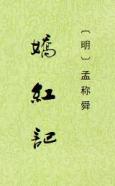 〔明〕孟称舜
嬌紅記